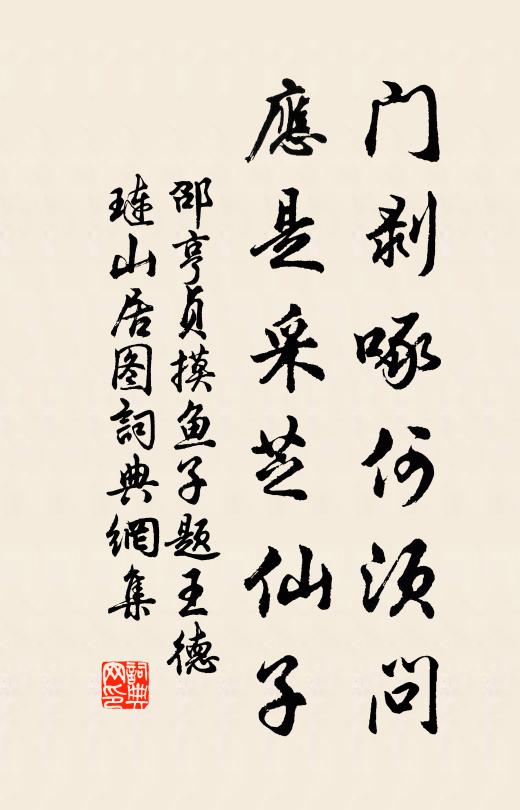 门剥啄何须问
應是采芝仙子
邵亨贞摸鱼子题王德
琏山居图詞典網集
詞典网印